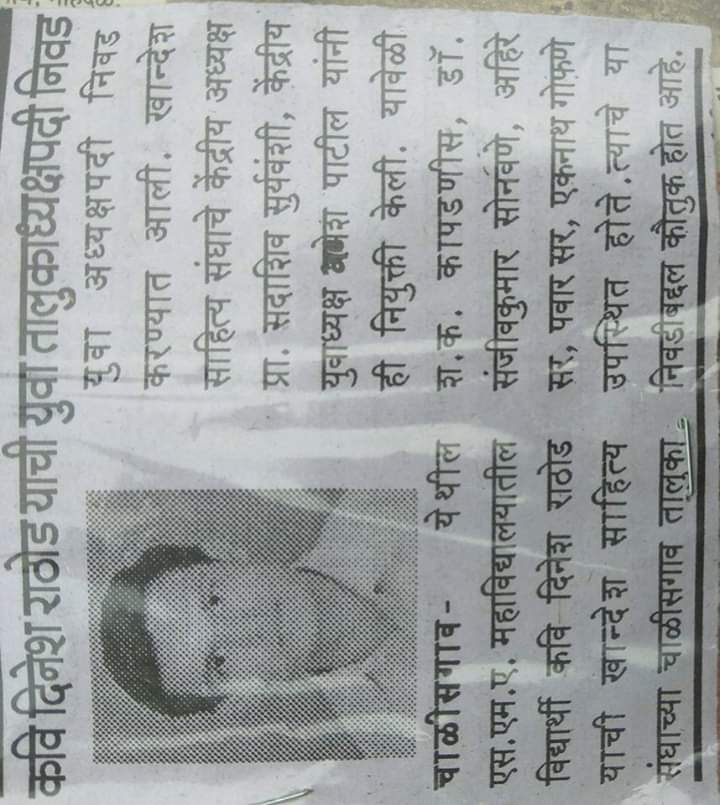 कवि दिनेश राठोड याची युवा तालुकाध्यक्षपदी निवड
चाळीसगाव - येथील
एस.एम.ए. महाविद्यालयातील
विद्यार्थी कवि दिनेश राठोड
याची खान्देश साहित्य
संघाच्या चाळीसगाव तालुका
युवा अध्यक्षपदी निवड
करण्यात आली. खान्देश
साहित्य संघाचे केंद्रीय अध्यक्ष
प्रा. सदाशिव सुर्यवंशी, केंद्रीय
युवाध्यक्ष पाटील यांनी
ही नियुक्ती केली. यावेळी
श.क. कापडणीस, डॉ.
संजीवकुमार सोनवणे, अहिरे
सर, पवार सर, एकनाथ गोफणे
उपस्थित होते.त्याचे या
निवडीबद्दल कौतुक होत आहे.